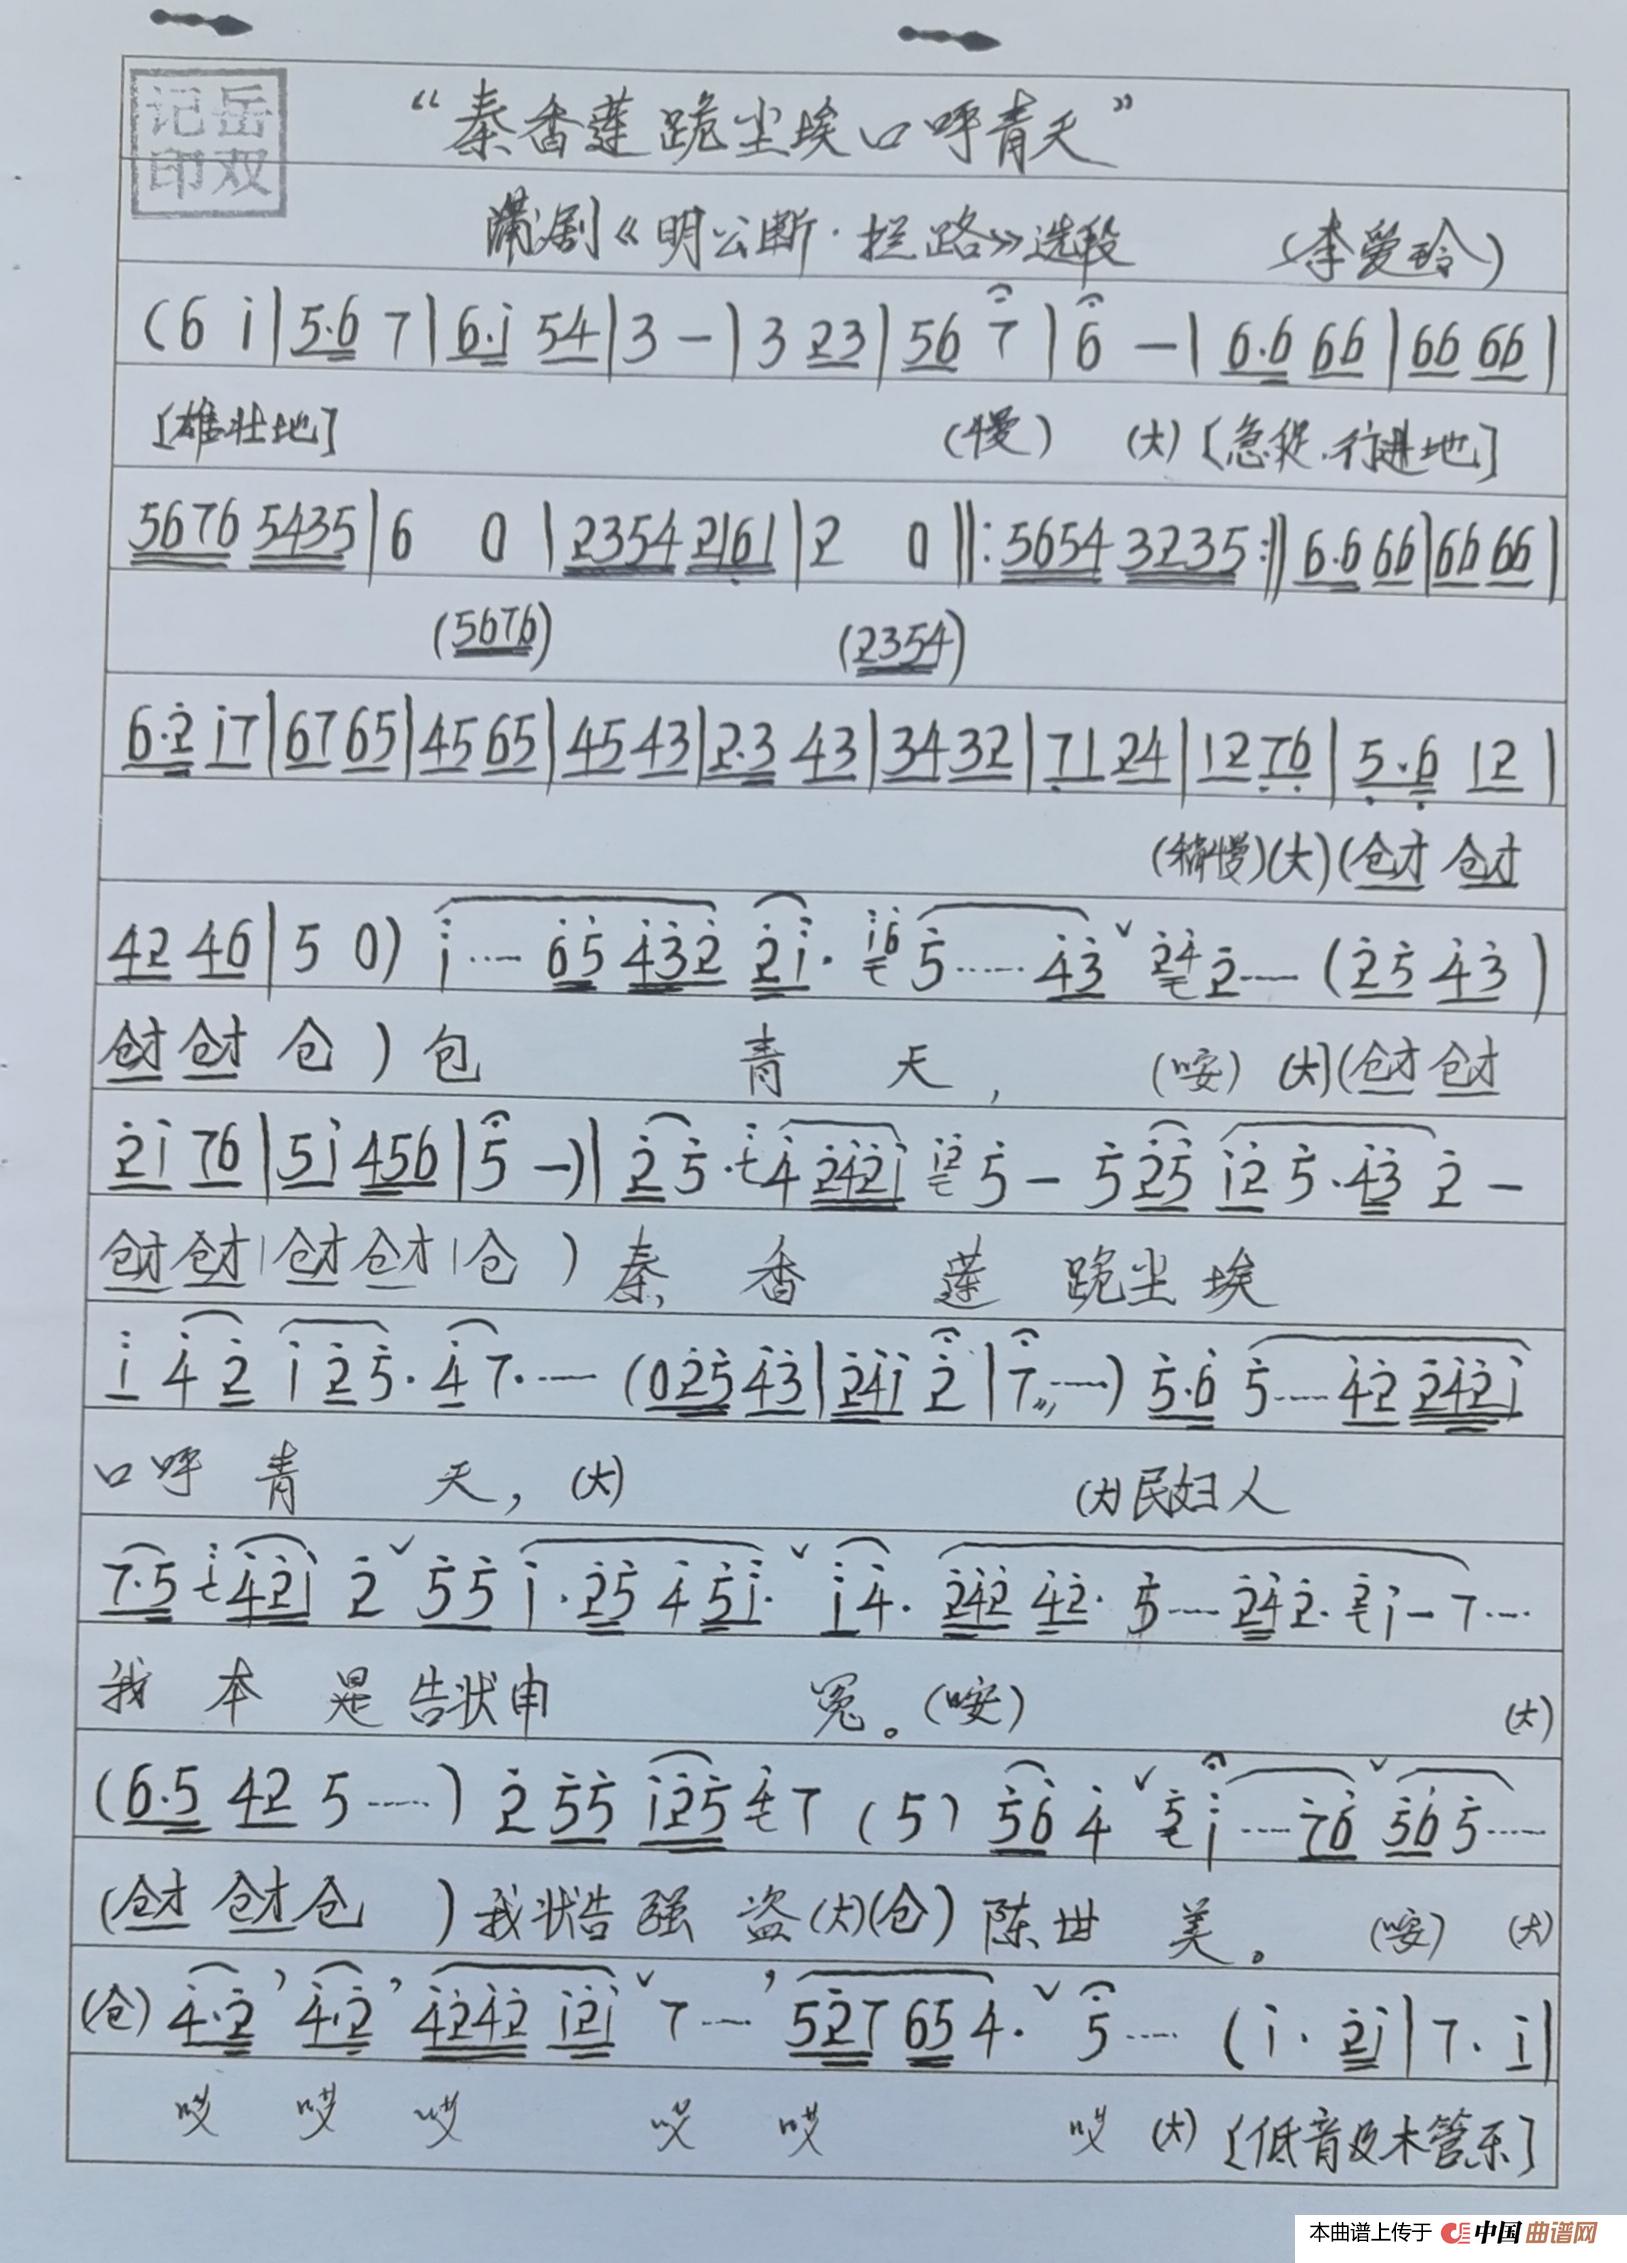 记岳
印双
“秦香莲跪尘埃口呼青天”
蒲剧《明公断·拦路》选段 (李爱玲)
(6 i|5·6 7|6·i 54|3 -|3 23|56 7|6 -|6·6 66|66 66|
[雄壮地] (慢) (大) [急促.行进地]
5676 5435|6 0|2354 2161|2 0‖:5654 3235:‖6·6 66|66 66|
(5676) (2354)
6·2 i7|67 65|45 65|45 43|2·3 43|34 32|71 24|12 76|5·6 12|
(稍慢)(大)(仓才 仓才
42 46|5 0) i···· 65 432 2i· i6 5······ 43 ˅ 24 2—— (25 43)
仓才 仓才 仓)包 青 天, (咹) (大)(仓才 仓才
2i 76|5i 456|5 -)| 2 5· i 4 242i i2 5 - 5 25 i2 5·43 2 -
仓才 仓才|仓才 仓才|仓)秦 香 莲 跪尘埃
i 4 2 i 2 5· 4 7····· (025 43|24i 2|7 ······) 5·6 5······ 42 242i
口呼 青 天, (大) (大)民妇人
7·5 i 42i 2 ˅ 55 i·25 4 5i· ˅ i4· 242 42· 5···· 24 2· 2 i - 7····
我 本 是 告状申 冤。(咹) (大)
(6·5 42 5······) 2 55 i25 4 7 (5) 56 4 ˅ 5 i ····· 76 ˅ 56 5······
(仓才 仓才 仓)我状告 强 盗(大)(仓)陈世 美。 (咹) (大)
(仓) 4·2 ’ 4·2 ’ 4242 i2i ˅ 7···· ’ 527 65 4· ˅ 5····· (i· 2i|7· i|
哎 哎 哎 哎 哎 哎 (大) [低音及木管乐]
本曲谱上传于 中国曲谱网